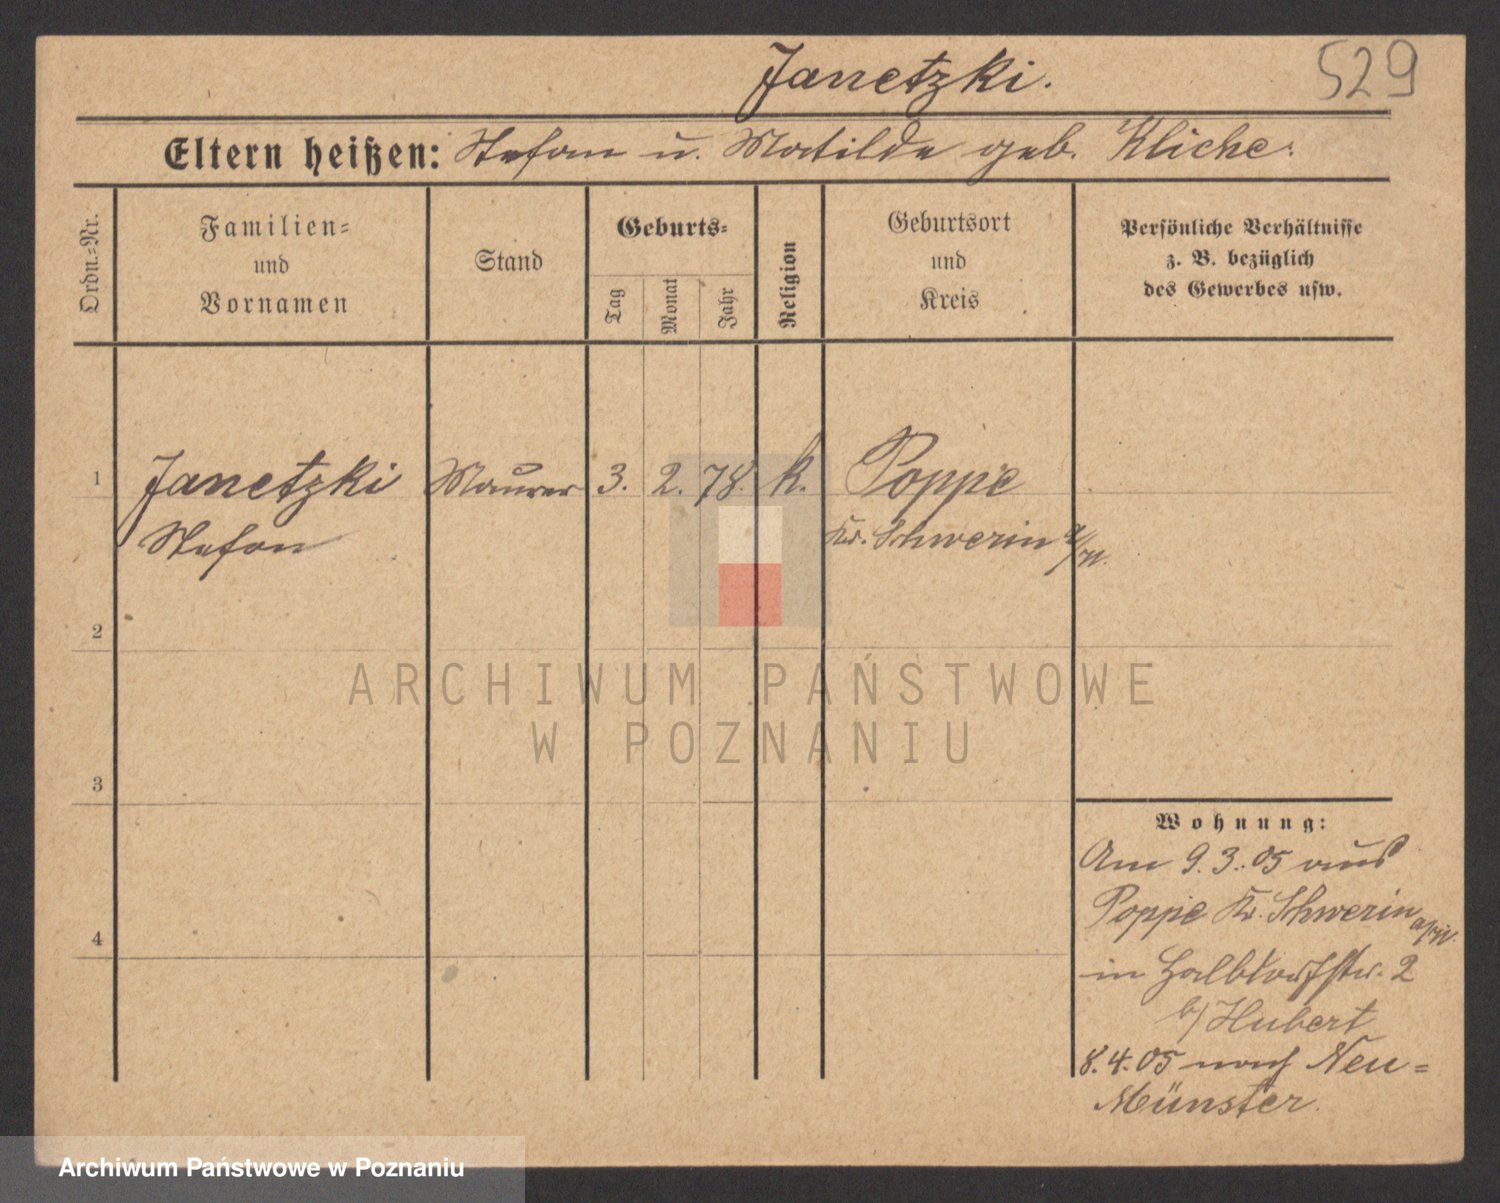 Janetzki.
529
Eltern heißen: Stefan u. Matilde geb. Kliche.
Ordn.=Nr.
Familien=
und
Vornamen
Stand
Geburts=
Tag
Monat
Jahr
Religion
Geburtsort
und
Kreis
Persönliche Verhältnisse
z. B. bezüglich
des Gewerbes usw.
1
Janetzki Maurer 3. 2. 78. k. Poppe
Stefan Kr. Schwerin a/W.
2
ARCHIWUM PAŃSTWOWE
W POZNANIU
3
Wohnung:
Am 9.3.05 aus
Poppe Kr. Schwerin a/W.
in Halbdorfstr. 2
b/ Hubert
4
8.4.05 nach Neu=
Münster.
Archiwum Państwowe w Poznaniu